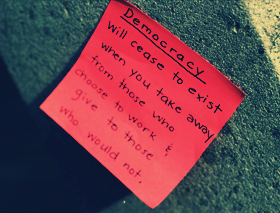 Democracy
will cease to exist
when you take away
from those who
choose to work &
give to those
who would not.